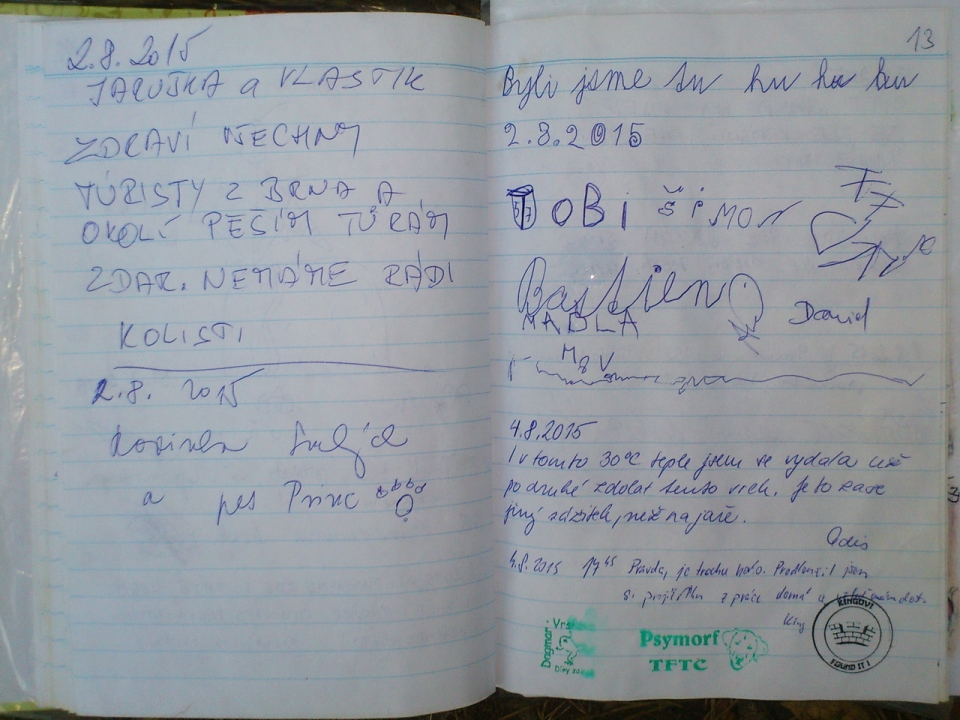 2.8.2015
JARUŠKA a VLASTIK
ZDRAVÍ VŠECHNY
TURISTY Z BRNA A
OKOLÍ PĚŠÍM TÚRÁM
ZDAR. NEMÁME RÁDI
KOLISTI
2.8. 2015
a pes Princ
13
Byli jsme tu hu hu hu
2.8.2015
TOBi šiMOn
Bastien
MADLA
David
M8V
4.8.2015
I v tomto 30°C teple jsem se vydala už
podruhé zdolat tento vrch. Je to zase
jiný zážitek, než na jaře.
4.8.2015 19 45 Pravda, je trochu horko. Prodloužil jsem
si projížďku z práce domů a
King
Dagmar
Psymorf
TFTC
KINGOVI
FOUND IT!